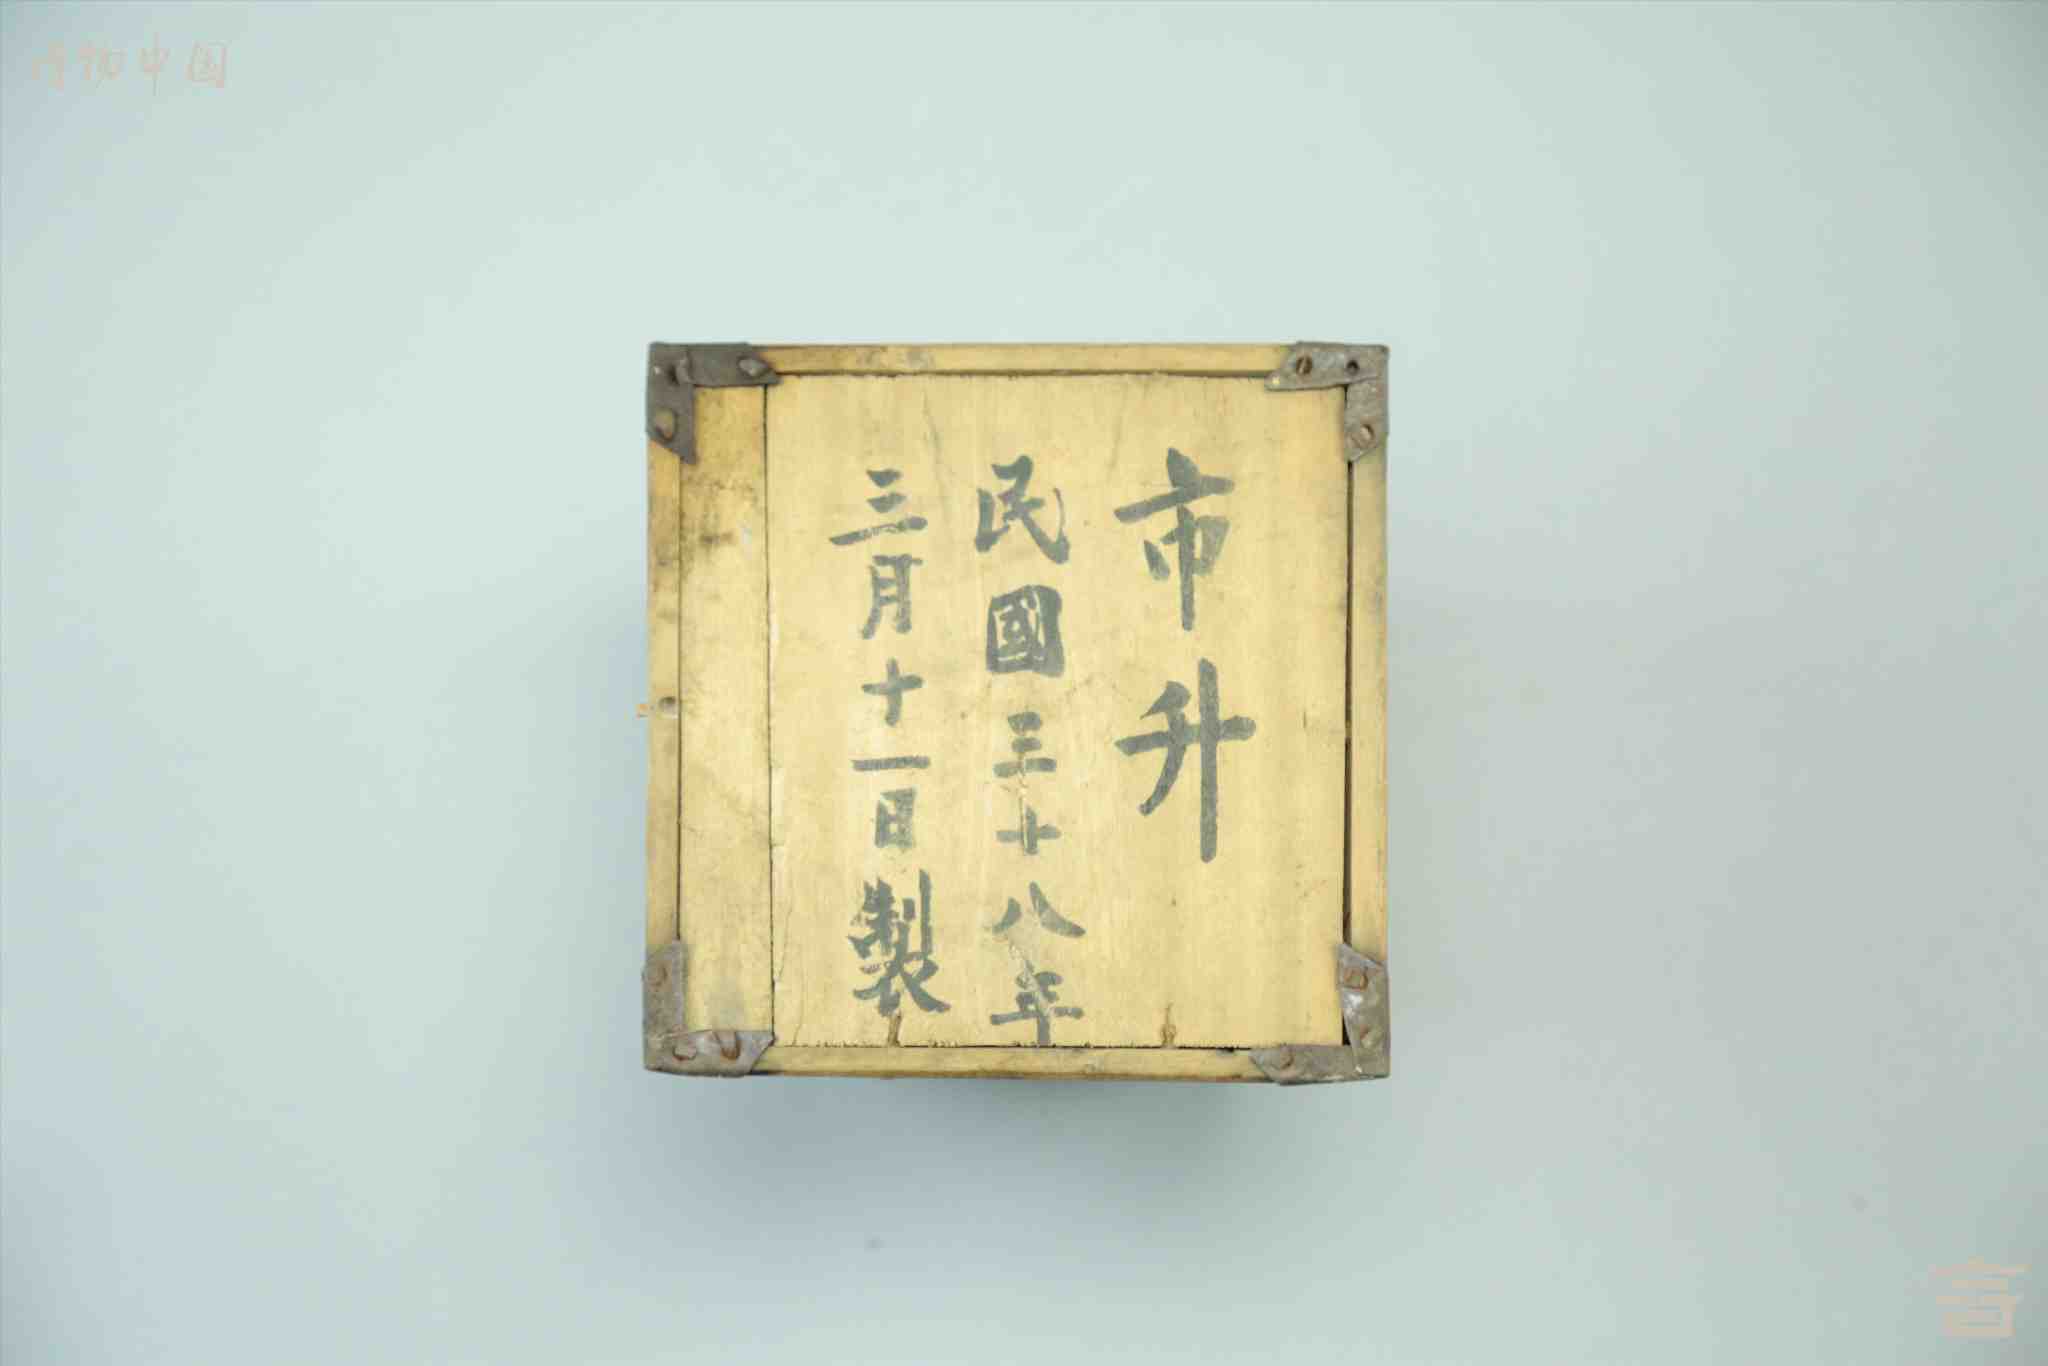 市升
民國三十八年
三月十一日製
博物中国